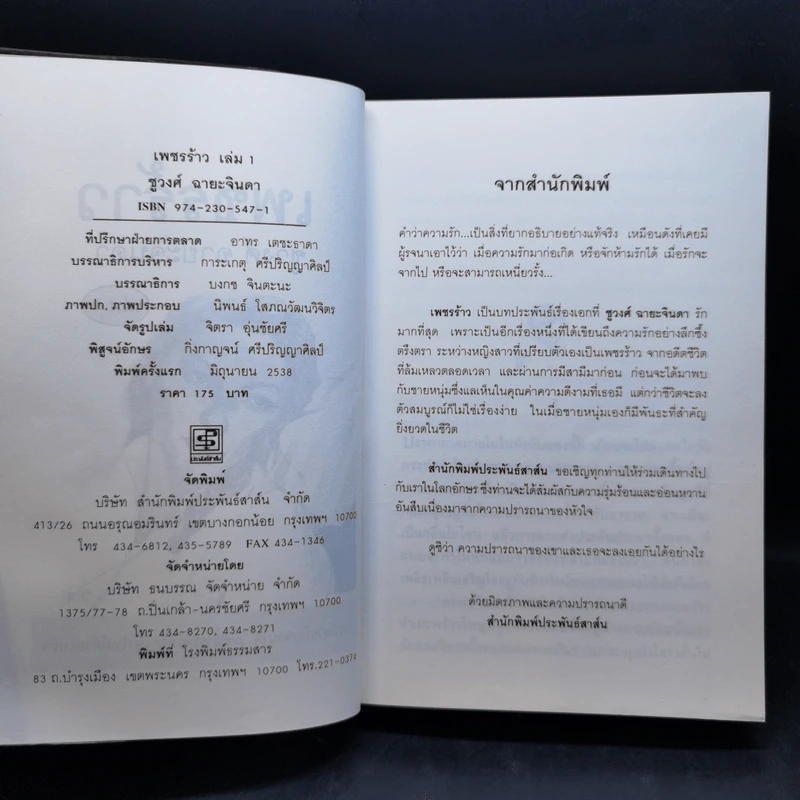 เพชรร้าว เล่ม 1
ชูวงศ์ ฉายะจินดา
ISBN 974-230-547-1
ที่ปรึกษาฝ่ายการตลาด อาทร เตชะธาดา
บรรณาธิการบริหาร การะเกตุ ศรีปริญญาศิลป์
บรรณาธิการ บงกช จินตะนะ
ภาพปก, ภาพประกอบ นิพนธ์ โสภณวัฒนวิจิตร
จัดรูปเล่ม จิตรา อุ่นชัยศรี
พิสูจน์อักษร กิ่งกาญจน์ ศรีปริญญาศิลป์
พิมพ์ครั้งแรก มิถุนายน 2538
ราคา 175 บาท
ประพันธ์สาส์น
จัดพิมพ์
บริษัท สำนักพิมพ์ประพันธ์สาส์น จำกัด
413/26 ถนนอรุณอมรินทร์ เขตบางกอกน้อย กรุงเทพฯ 10700
โทร 434-6812, 435-5789 FAX 434-1346
จัดจำหน่ายโดย
บริษัท ธนบรรณ จัดจำหน่าย จำกัด
1375/77-78 ถ.ปิ่นเกล้า-นครชัยศรี กรุงเทพฯ 10700
โทร 434-8270, 434-8271
พิมพ์ที่ โรงพิมพ์ธรรมสาร
83 ถ.บำรุงเมือง เขตพระนคร กรุงเทพฯ 10700 โทร.221-0374
จากสำนักพิมพ์
คำว่าความรัก...เป็นสิ่งที่ยากอธิบายอย่างแท้จริง เหมือนดังที่เคยมี
ผู้รจนาเอาไว้ว่า เมื่อความรักมาก่อเกิด หรือจักห้ามรักได้ เมื่อรักจะ
จากไป หรือจะสามารถเหนี่ยวรั้ง...
เพชรร้าว เป็นบทประพันธ์เรื่องเอกที่ ชูวงศ์ ฉายะจินดา รัก
มากที่สุด เพราะเป็นอีกเรื่องหนึ่งที่ได้เขียนถึงความรักอย่างลึกซึ้ง
ตรึงตรา ระหว่างหญิงสาวที่เปรียบตัวเองเป็นเพชรร้าว จากอดีตชีวิต
ที่ล้มเหลวตลอดเวลา และผ่านการมีสามีมาก่อน ก่อนจะได้มาพบ
กับชายหนุ่มซึ่งแลเห็นในคุณค่าความดีงามที่เธอมี แต่กว่าชีวิตจะลง
ตัวสมบูรณ์ก็ไม่ใช่เรื่องง่าย ในเมื่อชายหนุ่มเองก็มีพันธะที่สำคัญ
ยิ่งยวดในชีวิต
สำนักพิมพ์ประพันธ์สาส์น ขอเชิญทุกท่านให้ร่วมเดินทางไป
กับเราในโลกอักษร ซึ่งท่านจะได้สัมผัสกับความรุ่มร้อนและอ่อนหวาน
อันสืบเนื่องมาจากความปรารถนาของหัวใจ
ดูซิว่า ความปรารถนาของเขาและเธอจะลงเอยกันได้อย่างไร
ด้วยมิตรภาพและความปรารถนาดี
สำนักพิมพ์ประพันธ์สาส์น